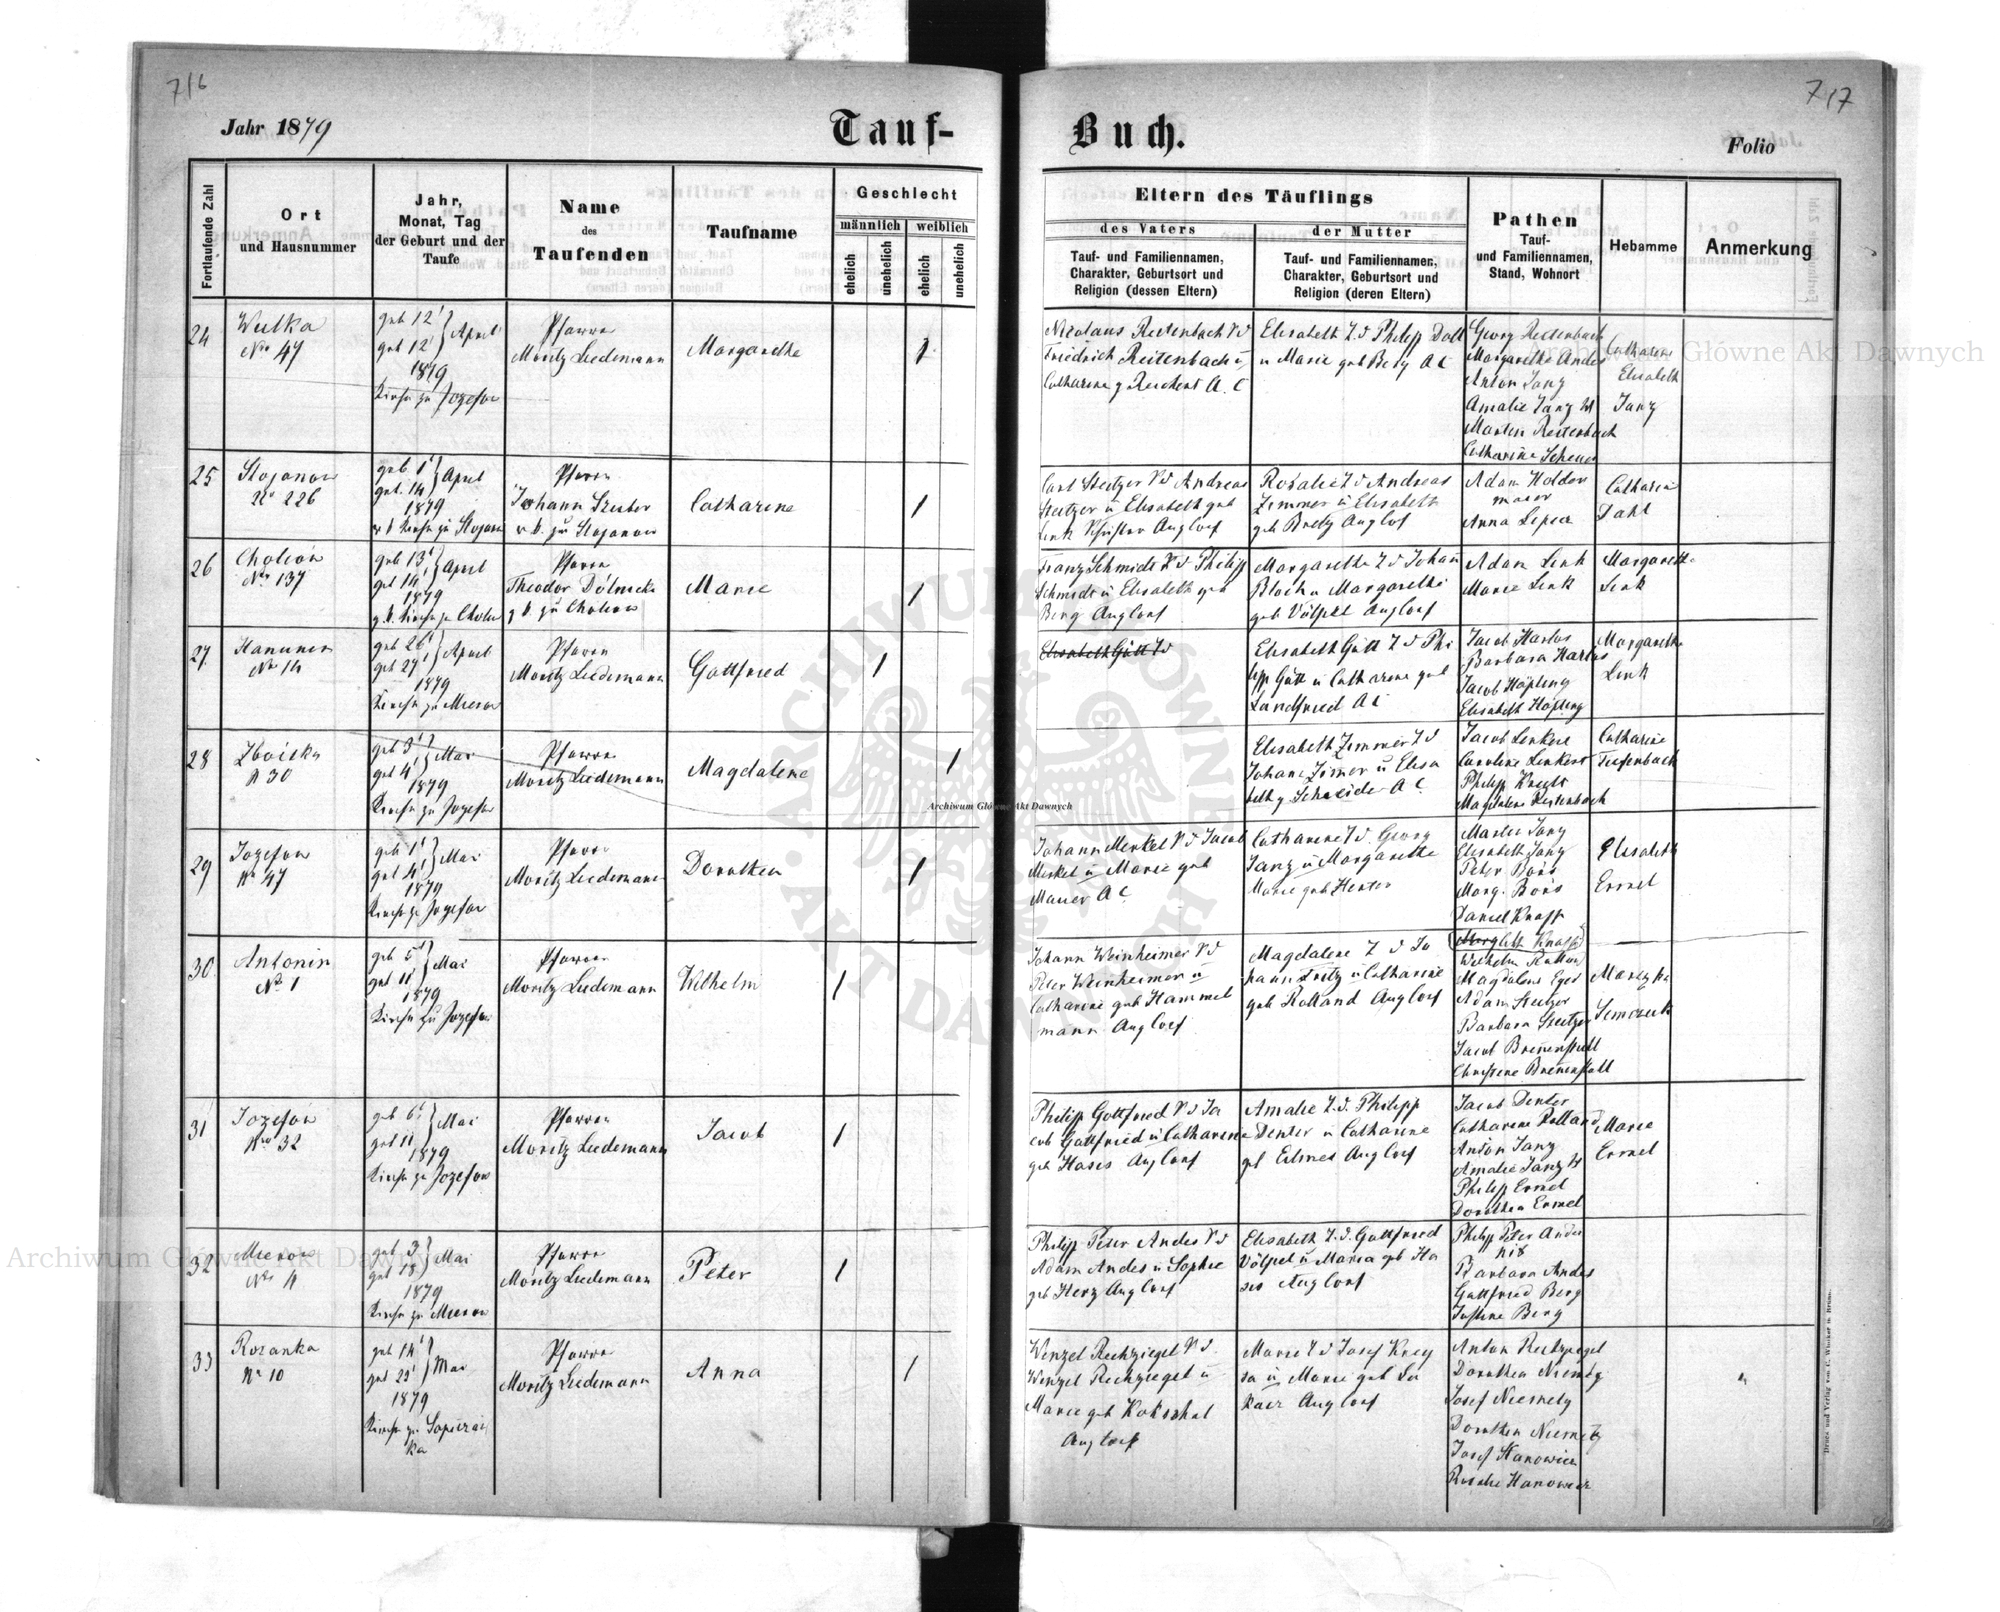 716
717
Jahr 1879
Tauf-
Buch.
Folio
Fortlaufende Zahl
Ort
und Hausnummer
Jahr,
Monat, Tag
der Geburt und der
Taufe
Name
des
Taufenden
Taufname
Geschlecht
männlich
weiblich
ehelich
unehelich
ehelich
unehelich
Eltern des Täuflings
des Vaters
der Mutter
Tauf- und Familiennamen,
Charakter, Geburtsort und
Religion (dessen Eltern)
Tauf- und Familiennamen,
Charakter, Geburtsort und
Religion (deren Eltern)
Pathen
Tauf-
und Familiennamen,
Stand, Wohnort
Hebamme
Anmerkung
24
Wulka
No 47
geb 12 } April
get 12
1879
Kirche zu Jozefow
Pfarrer
Moritz Liedemann
Margarethe
1
Nicolaus Reitenbach S d
Friedrich Reitenbach u
Catharine g Reichert A. C
Elisabeth T d Philipp Doll
u Marie geb Berg A C
Georg Reitenbach
Margarethe Andes
Anton Janz
Amalie Janz
Martin Reitenbach
Catharine Scheuer
Catharine
Elisabeth
Janz
25
Stojanow
No 226
geb 1 } April
get. 14
1879
Kirche zu Stojanow
Pfarrer
Johann
r. k. zu Stojanow
Catharine
1
Carl Steitzer S d Andreas
Steitzer u Elisabeth geb
Link
Rosalie T d Andreas
Zimmer u Elisabeth
geb Bredy
Adam Holder
maier
Anna
Catharine
Dahl
26
Cholion
No 137
geb 13 } April
get 14
1879
g. k. Kirche zu
Pfarrer
Theodor
g k. zu Cholion
Marie
1
Franz Schmidt S d Philipp
Schmidt u Elisabeth geb
Berg Aug Conf
Margarethe T d Johann
Bloch u Margarethe
geb Völpel Aug Conf
Adam Link
Marie Link
Margarethe
Link
27.
Hanunin
No 14
geb 26 } April
get 27
1879
Kirche zu Mierow
Pfarrer
Moritz Liedemann
Gottfried
1
Elisabeth Gütt T d
Elisabeth Gütt T d Phi
lipp Gütt u Catharine geb
Landfried A C
Jacob Harlos
Barbara Harlos
Jacob Höpling
Elisabeth Höpling
Margarethe
Link
28
Zboiska
N 30
geb 3 } Mai
get 4
1879
Kirche zu Jozefow
Pfarrer
Moritz Liedemann
Magdalene
1
Elisabeth Zimmer T d
Johann Zimmer u Elisa
beth g Schneider A C
Jacob Lenkert
Caroline Lenkert
Philipp
Magdalene Reitenbach
Catharine
Tiefenbach
29
Jozefow
No 47
geb 1 } Mai
get 4
1879
Kirche zu Jozefow
Pfarrer
Moritz Liedemann
Dorothea
1
Johann Merkel S d Jacob
Merkel u Marie geb
Mauer A C
Catharine T d Georg
Janz u Margarethe
Marie geb Henter
Martin Janz
Elisabeth Janz
Peter Boris
Marg. Boris
Daniel Knapp
Elisabeth
Ermel
30
Antonin
No 1
geb 5 } Mai
get 11
1879
Kirche zu Jozefow
Pfarrer
Moritz Liedemann
Wilhelm
1
Johann Weinheimer S d
Peter Weinheimer u
Catharine geb Hammel
mann Aug Conf
Magdalene T d Jo
hann Fritz u Catharine
geb Rolland Aug Conf
Knapp
Wilhelm
Magdalene
Adam Steitzer
Barbara Steitzer
Jacob Brennenstuhl
Christine Brennenstuhl
Semczuk
31
Jozefow
No 32
geb 6 } Mai
get 11
1879
Kirche zu Jozefow
Pfarrer
Moritz Liedemann
Jacob
1
Philipp Gottfried S d Ja
cob Gottfried u Catharine
geb Hasis Aug Conf
Amalie T. d. Philipp
Denter u Catharine
gb Aug Conf
Jacob Denter
Catharine Rolland
Anton Janz
Amalie Janz
Philipp Ermel
Dorothea Ermel
Marie
Ermel
32
Mierow
No 4
geb 3 } Mai
get 18
1879
Kirche zu Mierow
Pfarrer
Moritz Liedemann
Peter
1
Philipp Peter Andes S d
Adam Andes u Sophie
geb Herz Aug Conf
Elisabeth T. d. Gottfried
Völpel u Maria geb Ha
sis Aug Conf
Philipp Peter Andes
Barbara Andes
Gottfried Berg
Justine Berg
33
Rozanka
No 10
geb 14 } Mai
get 25
1879
Kirche zu
ka
Pfarrer
Moritz Liedemann
Anna
1
Wenzel Rechziegel S d.
Wenzel Rechziegel u
Marie geb Kokschal
Aug Conf
Marie T d Josef
u Marie geb
Aug Conf
Anton Rechziegel
Dorothea Niemetz
Josef Niemetz
Dorothea Niemetz
Josef Hanowicz
Rosalie Hanowicz
Druck und Verlag von C. Winiker in Brünn.
Archiwum Główne Akt Dawnych
Archiwum Główne Akt Dawnych
Archiwum Główne Akt Dawnych
ARCHIWUM GŁÓWNE AKT DAWNYCH